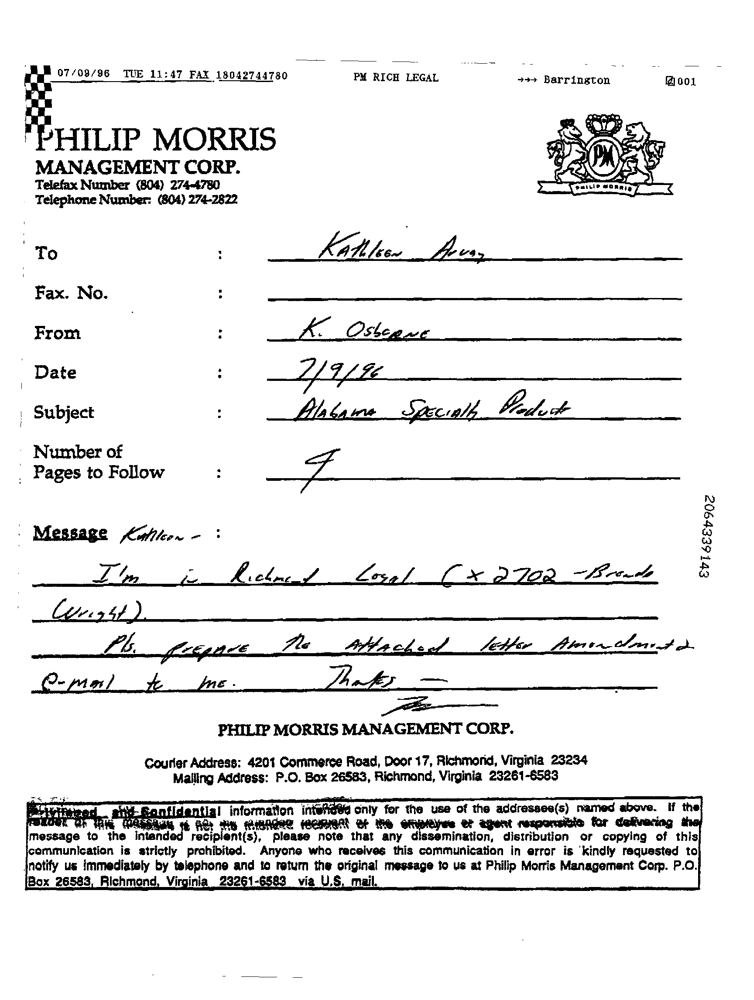 07/09/96 TUE 11:47 FAX 18042744780 PM RICH LEGAL →→→ Barrington 001
PHILIP MORRIS
MANAGEMENT CORP.
Telefax Number (804) 274-4780
Telephone Number: (804) 274-2822
PM
PHILIP MORRIS
To : Kathleen
Fax. No. :
From : K. Osborne
Date : 7/9/96
Subject : Alabama Specialty Products
Number of
Pages to Follow : 4
2064339143
Message Kathleen - :
I'm in Richmond Legal (x 2702 - Brenda
(Wright).
Pls. prepare the attached letter Amendment &
e-mail to me. Thanks —
PHILIP MORRIS MANAGEMENT CORP.
Courier Address: 4201 Commerce Road, Door 17, Richmond, Virginia 23234
Mailing Address: P.O. Box 26583, Richmond, Virginia 23261-6583
Privileged and Confidential information intended only for the use of the addressee(s) named above. If the
reader of this message is not the intended recipient or the employee or agent responsible for delivering the
message to the intended recipient(s), please note that any dissemination, distribution or copying of this
communication is strictly prohibited. Anyone who receives this communication in error is kindly requested to
notify us immediately by telephone and to return the original message to us at Philip Morris Management Corp. P.O.
Box 26583, Richmond, Virginia 23261-6583 via U.S. mail.